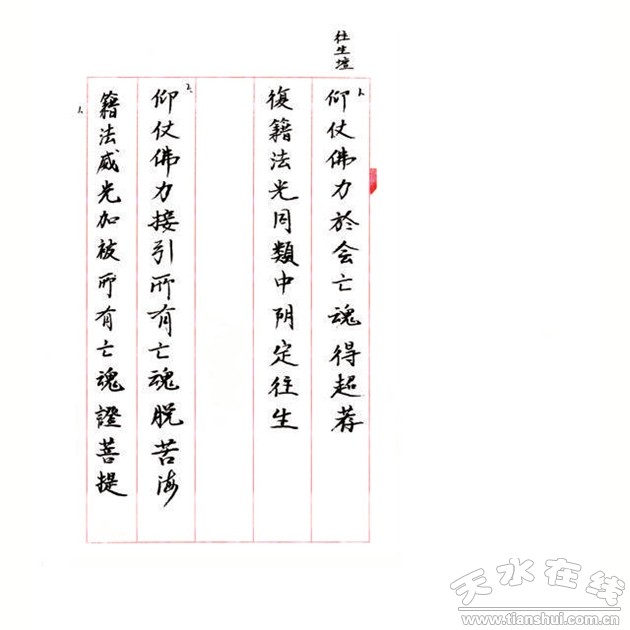 往生壇
1、仰仗佛力於会亡魂得超荐
復籍法光同類中阴定往生
2、仰仗佛力接引所有亡魂脱苦海
籍法威光加被所有亡魂證菩提
天水在线
www.tianshui.com.cn